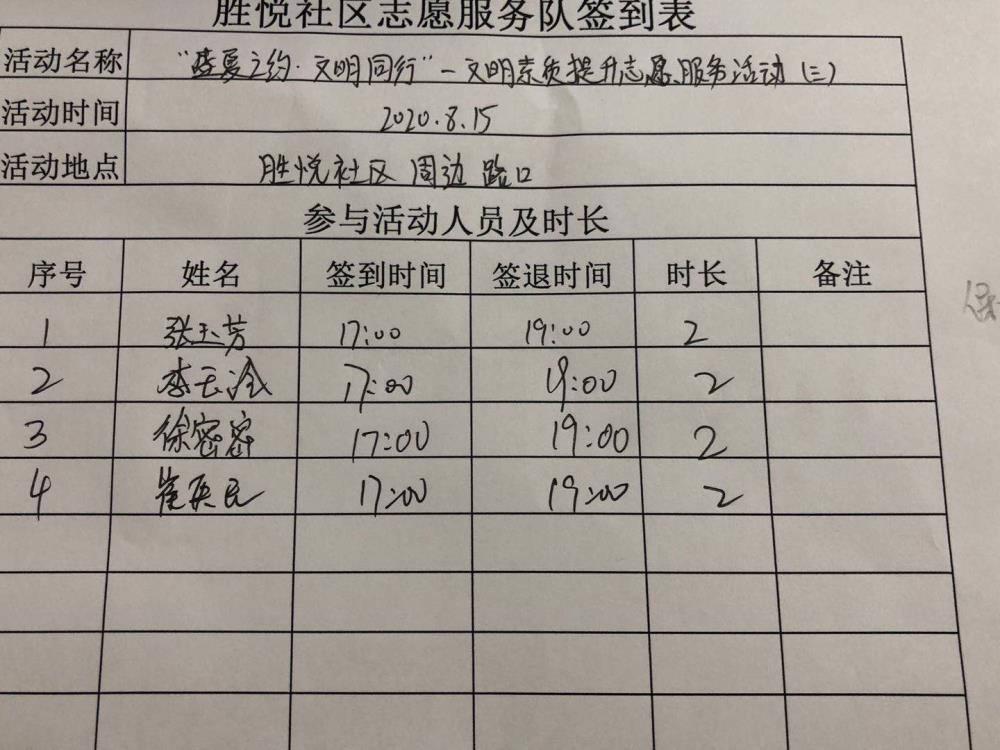 胜悦社区志愿服务队签到表
活动名称 "盛夏之约·文明同行"—文明素质提升志愿服务活动(三)
活动时间 2020.8.15
活动地点 胜悦社区 周边 路口
参与活动人员及时长
序号 姓名 签到时间 签退时间 时长 备注
1 张玉芳 17:00 19:00 2
2 17:00 19:00 2
3 徐密密 17:00 19:00 2
4 崔英民 17:00 19:00 2